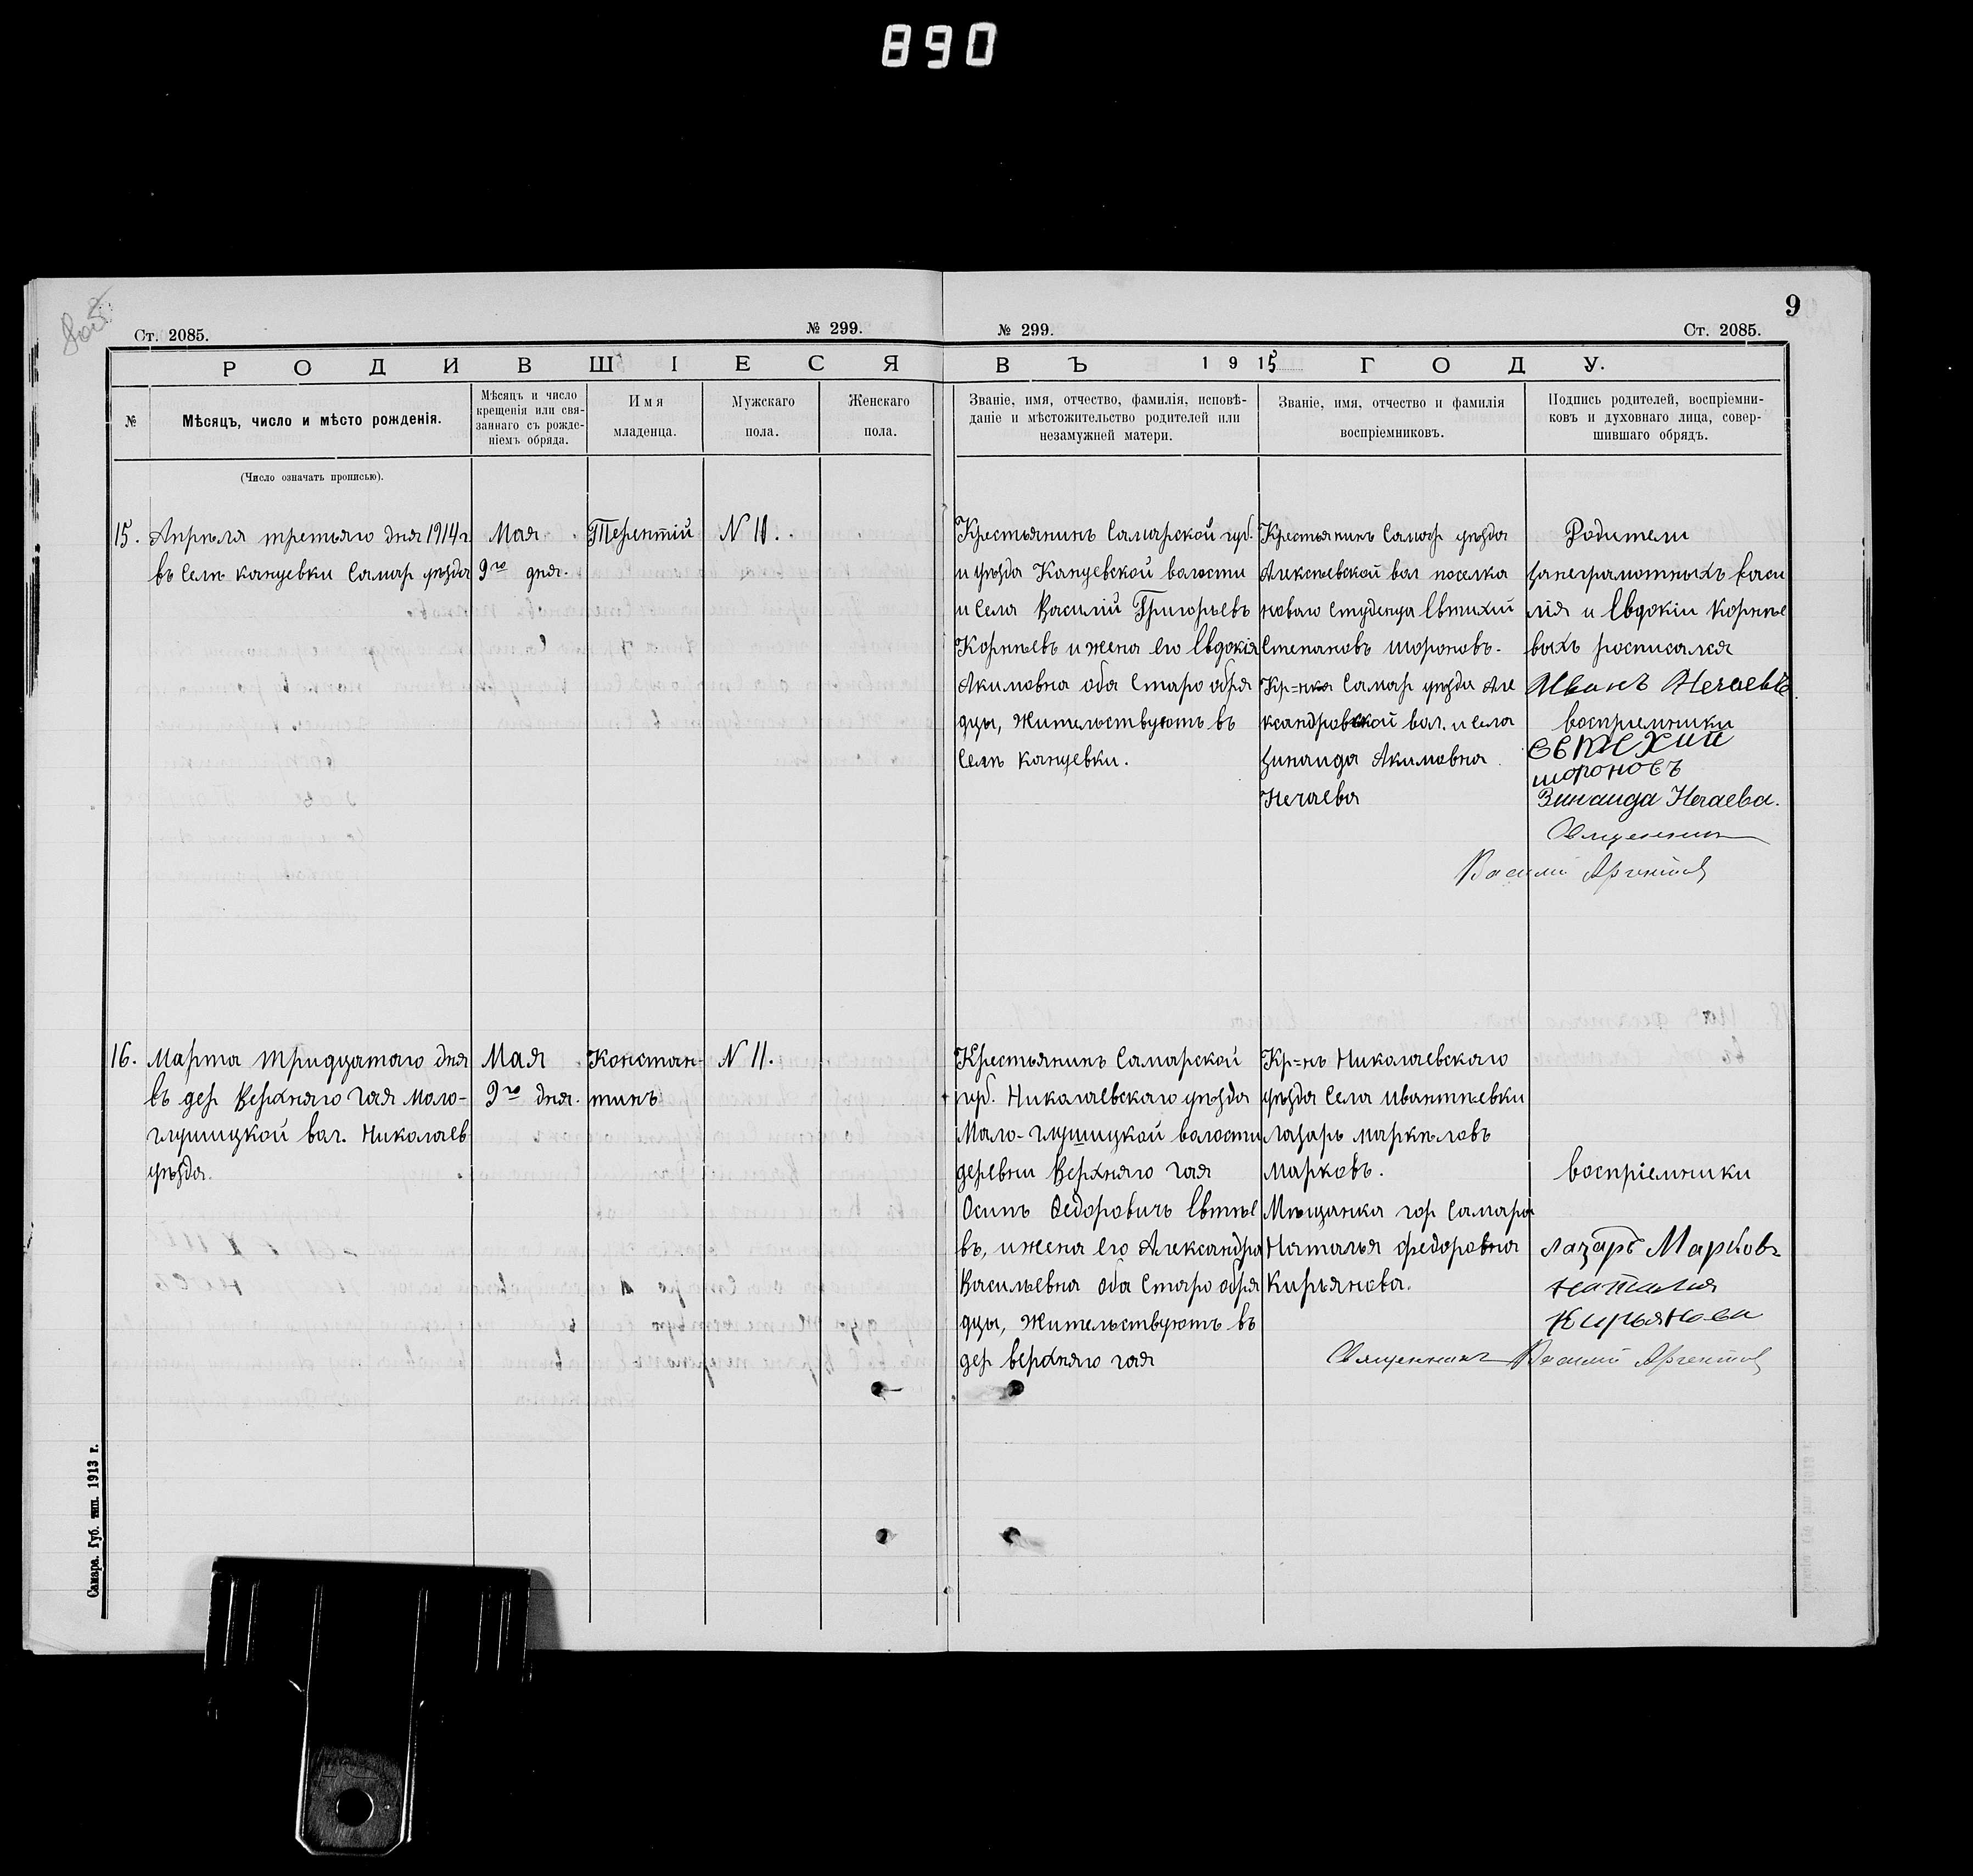 890
9
Ст. 2085.
№ 299.
№ 299.
Ст. 2085.
РОДИВШІЕСЯ
ВЪ 1915 ГОДУ.
№
Мѣсяцъ, число и мѣсто рожденія.
Мѣсяцъ и число
крещенія или свя-
заннаго съ рожде-
ніемъ обряда.
Имя
младенца.
Мужскаго
пола.
Женскаго
пола.
Званіе, имя, отчество, фамилія, исповѣ-
даніе и мѣстожительство родителей или
незамужней матери.
Званіе, имя, отчество и фамилія
воспріемниковъ.
Подпись родителей, воспріемни-
ковъ и духовнаго лица, совер-
шившаго обрядъ.
(Число означать прописью).
15.
Апрѣля третьяго дня 1914 г.
въ селѣ канцевки Самар уѣзда
Мая
9го дня.
Терентій
N 11.
Крестьянинъ Самарской губ.
и уѣзда Канцевской волости
и села Василій Григорьевъ
Корнѣевъ и жена его Евдокія
Акимовна оба Старо обря
дцы, жительствуютъ въ
селѣ канцевки.
Крестьянинъ Самар уѣзда
Алексѣевской вол поселка
новаго студенца Евтихій
Степановъ шороновъ.
Кр=нка Самар уѣзда Але
ксандровской вол. и села
Зинаида Акимовна
Нечаева
Родители
занеграмотныхъ васи
лія и Евдокіи корнѣе
выхъ росписался
Иванъ Нечаевъ
воспріемники
Евтихий
шороновъ
Зинаида Нечаева.
Священникъ
Василій Аргентов
16.
Марта тридцатаго дня
въ дер Верхняго гая мало-
глушицкой вол. Николаев
уѣзда.
Мая
9го дня.
Констан-
тинъ
N 11.
Крестьянинъ Самарской
губ. Николаевскаго уѣзда
Мало-глушицкой волости
деревни Верхняго гая
Осипъ Ѳедоровичъ Евтѣе
въ, и жена его Александра
Васильевна оба Старо обря
дцы, жительствуютъ въ
дер верхняго гая
Кр=нъ Николаевскаго
уѣзда села ивантѣевки
лазарь маркѣловъ
Марковъ.
Мѣщанка гор Самары
Наталья федоровна
Кирьянова.
воспріемники
лазарь Марковъ
наталия
Кирьянова
Священникъ Василій Аргентов
Самара. Губ. тип. 1913 г.